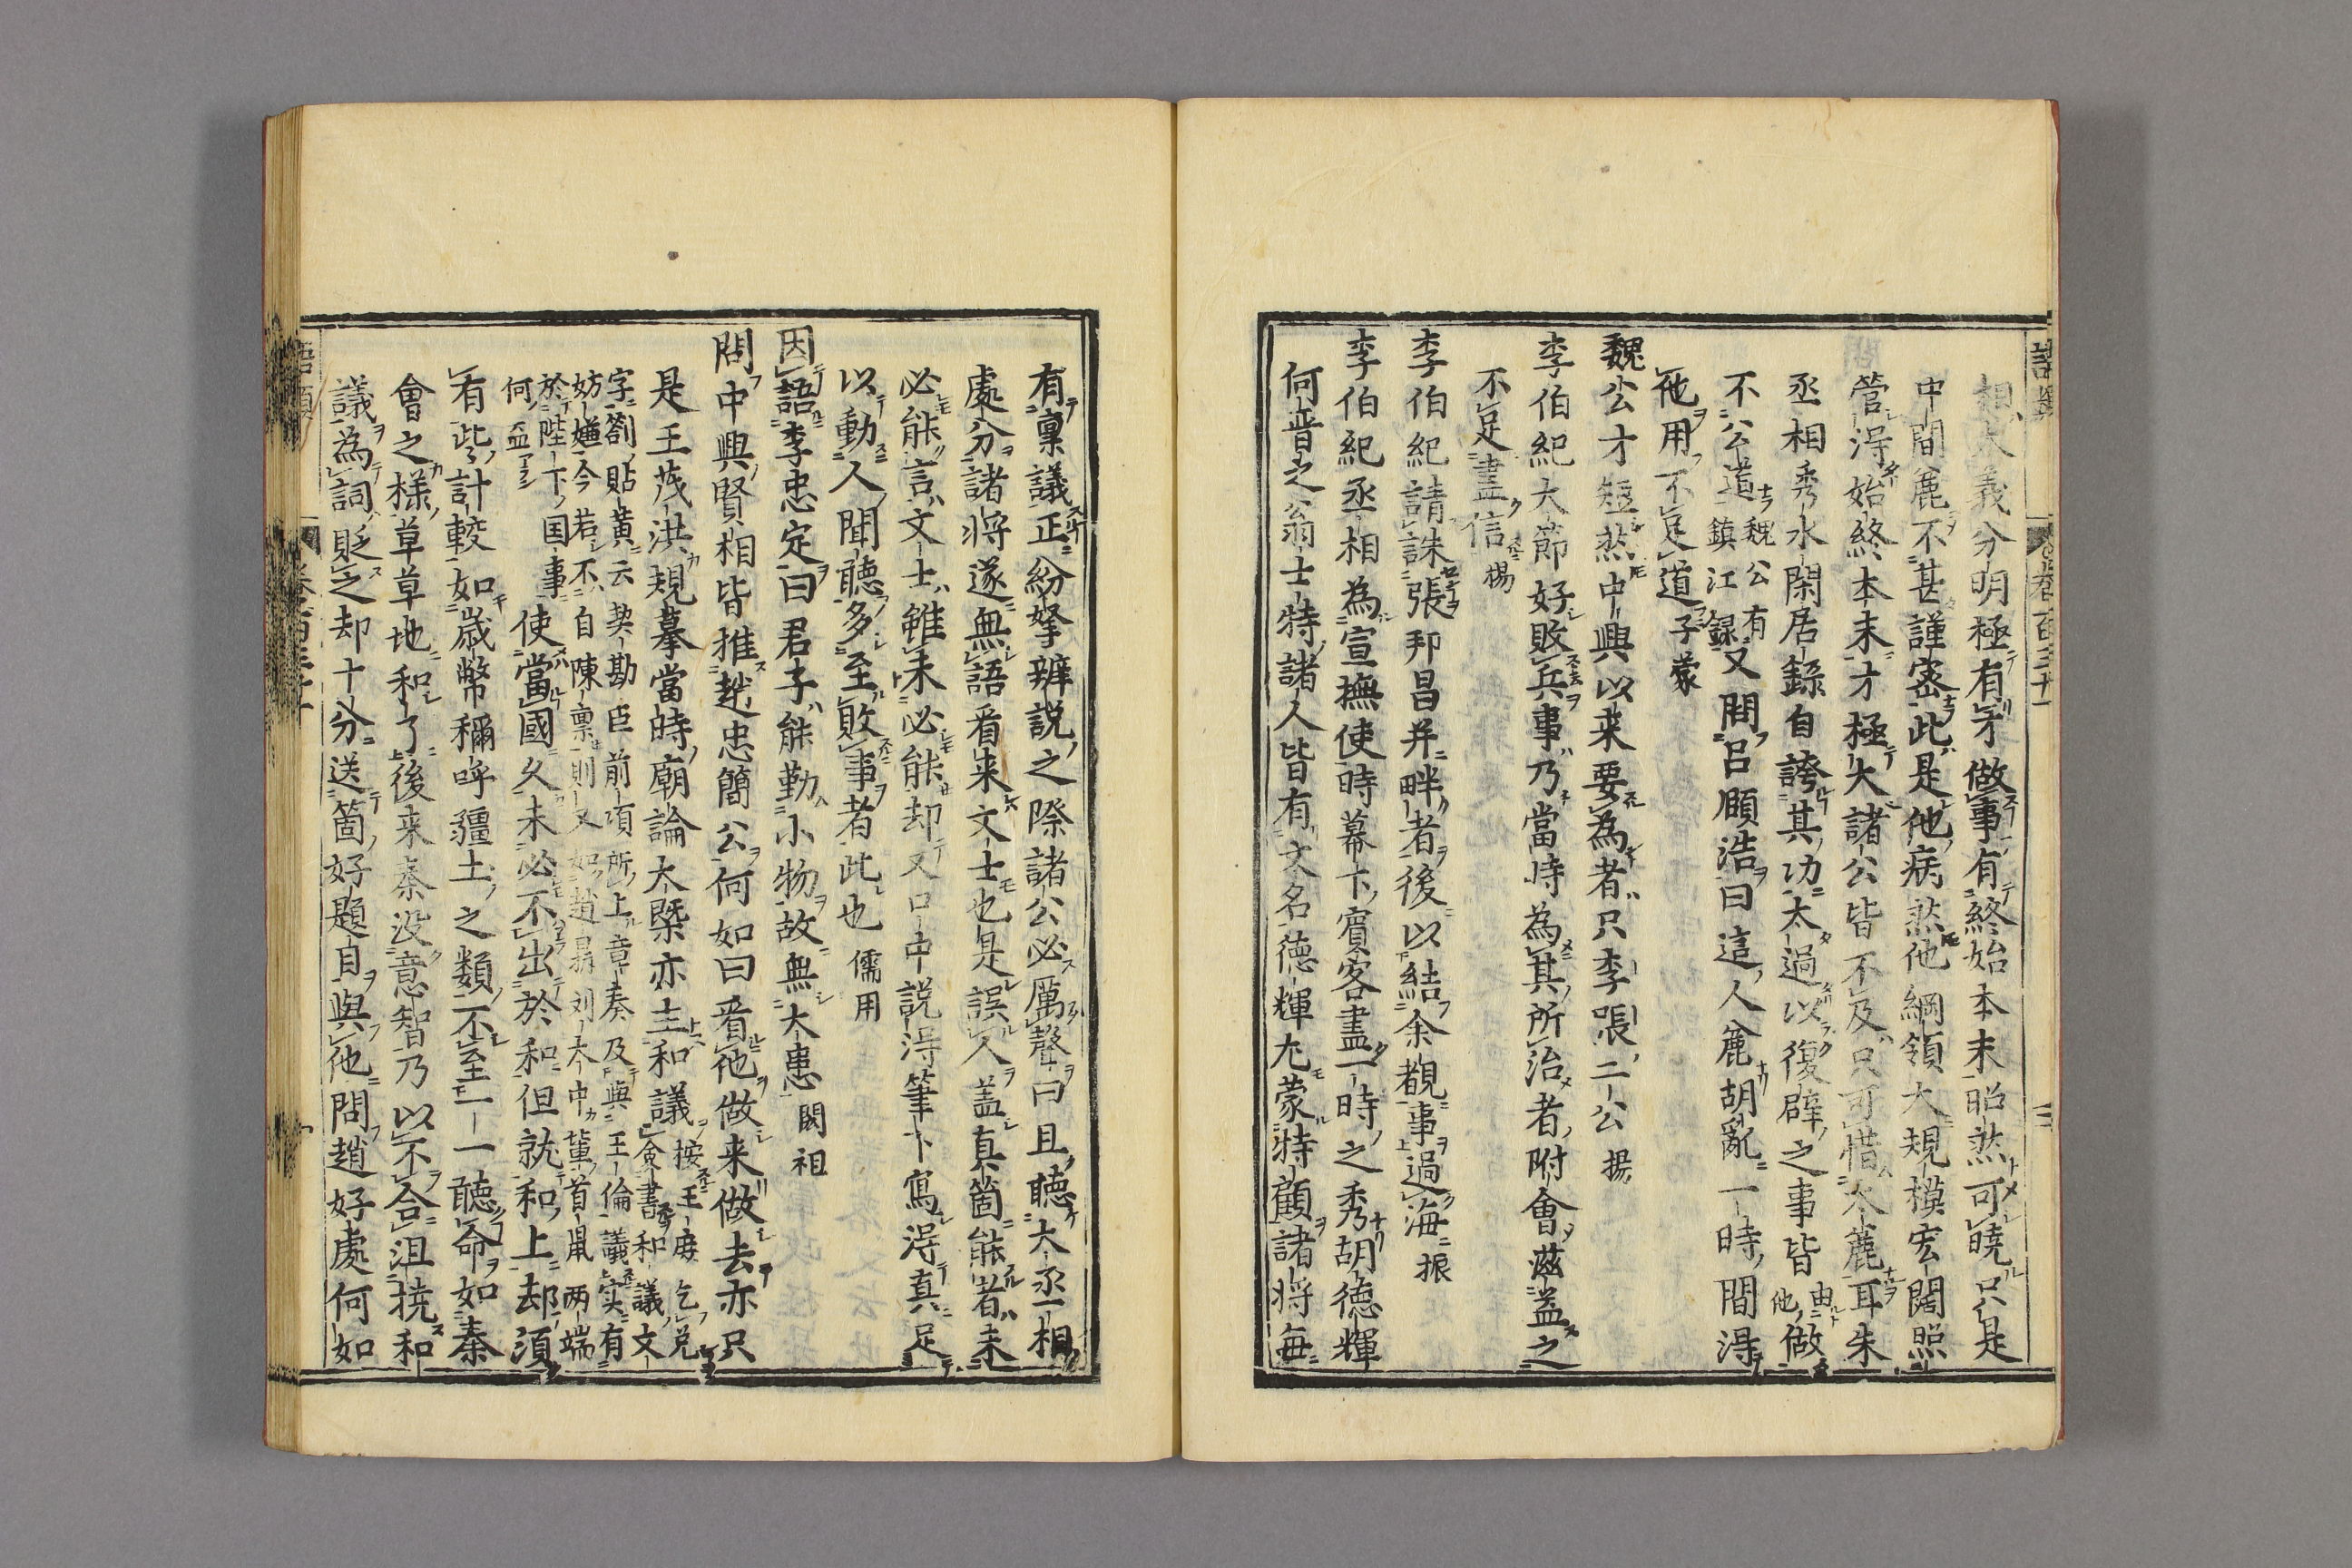 相大義分明極有才做事有終始本末昭然可曉只是
中間麄不甚謹密此是他病然他綱領大規模宏闊照
管得始終本末才極大諸公皆不及只可惜太麄耳朱
丞相秀水閑居錄自誇其功太過以復辟之事皆由他做
不公道魏公有鎮江録又問呂頤浩曰這人麄胡亂一時間得
他用不足道子蒙
魏公才短然中興以来要為者只李張二公揚
李伯紀大節好敗兵事乃當時為其所治者附會滋益之
不足盡信揚
李伯紀請誅張邦昌并畔者後以結余覩事過海振
李伯紀丞相為宣撫使時幕下賓客盡一時之秀胡德輝
何晉之翁士特諸人皆有文名德輝尤蒙特顧諸將每
有稟議正紛拏辨説之際諸公必厲聲曰且聽大丞相
處分諸將遂無語看来文士也是誤人蓋真箇能者未
必能言文士雖未必能却又口中説得筆下寫得真足
以動人聞聽多至敗事者此也儒用
因語李忠定曰君子能勤小物故無大患閎祖
問中興賢相皆推趙忠簡公何如曰看他做来做去亦只
是王茂洪規摹當時廟論大槩亦主和議按王庶乞兑僉書和議文
字劄貼黄云契勘臣前項所上章奏及與王倫議實有
妨嫌今若不自陳稟則又如趙鼎刘大中輩首鼠兩端
於陛下国事何益使當國久未必不出於和但就和上却須
有些計較如歳幣稱呼疆土之類不至一一聽命如秦
會之樣草草地和了後来秦没意智乃以不合沮撓和
議為詞貶之却十分送箇好題目與他問趙好處何如